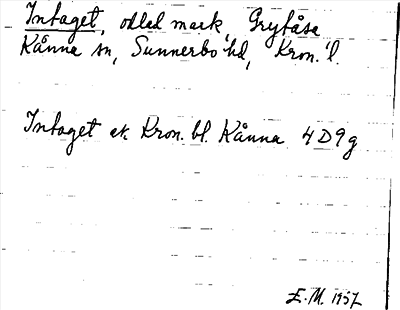 Intaget, odlad mark, Grytåsa
Kånna sn, Sunnerbo hd, Kron. l.
Intaget ek Kron. bl. Kånna 4D9g
E.M. 1957